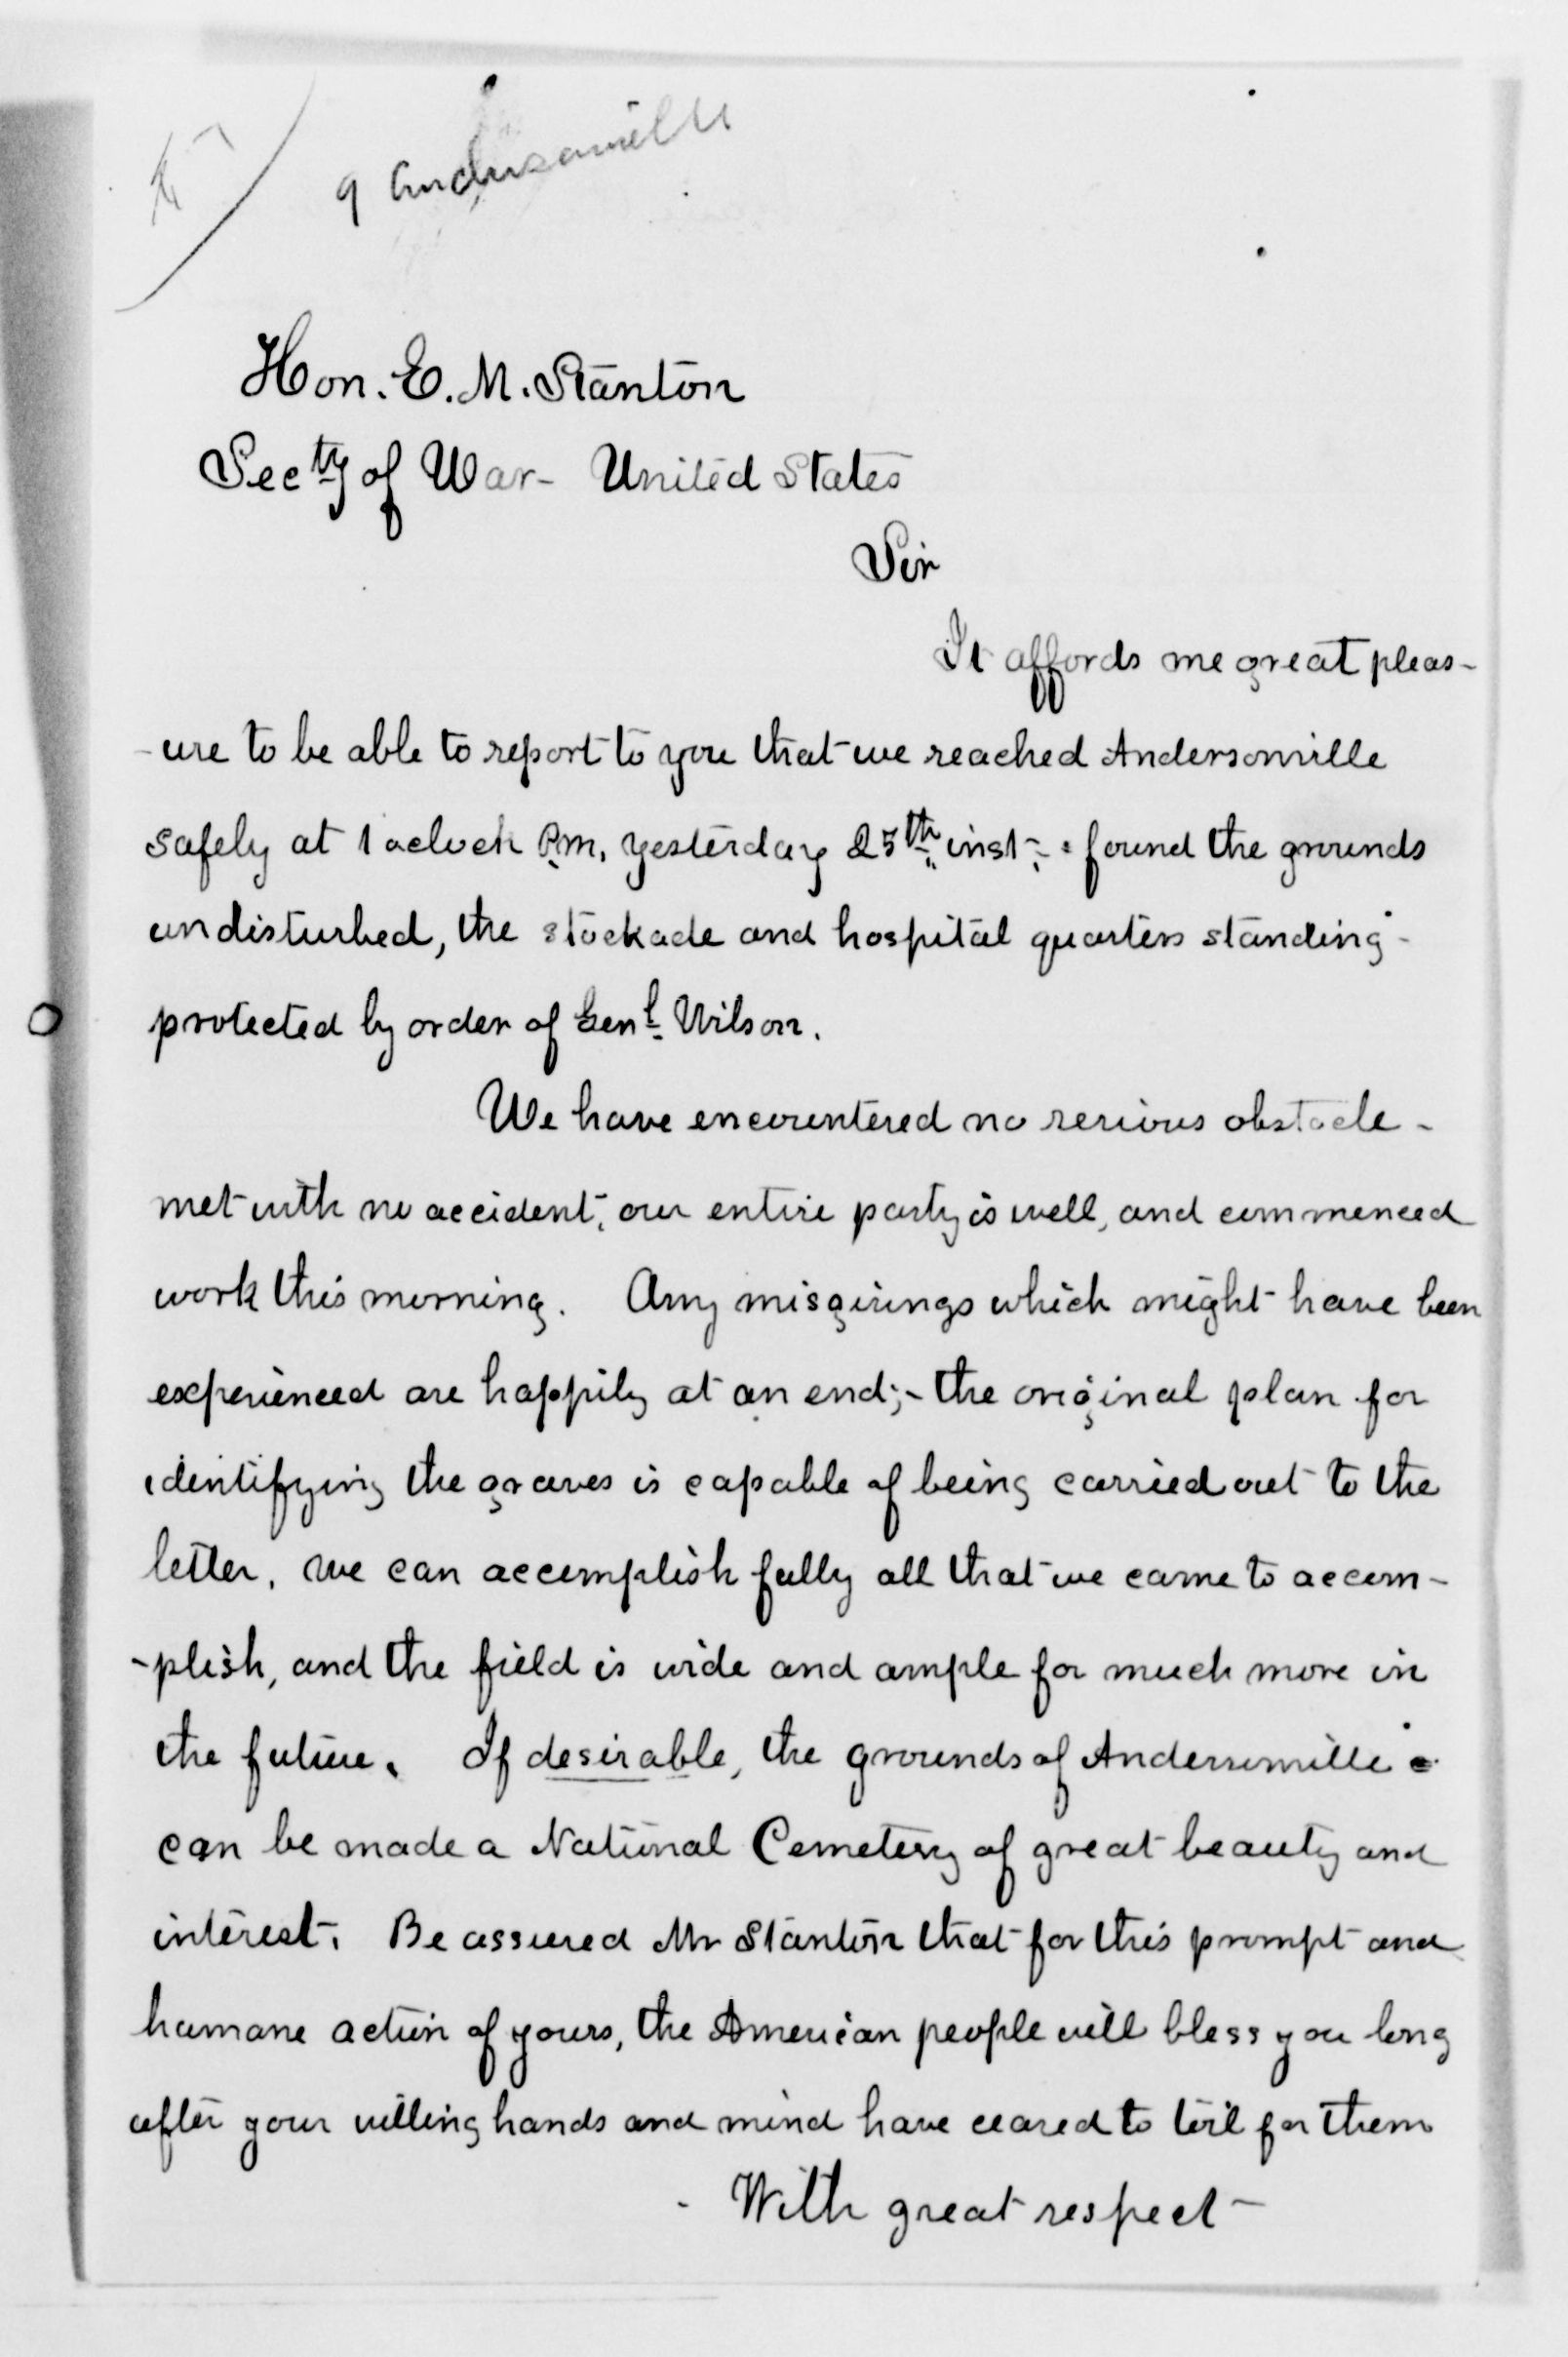 9 Andersonville
Hon. E. M. Stanton
Secty of War - United States
Sir
It affords me great pleas-
-ure to be able to report to you that we reached Andersonville
safely at 1 oclock P.m, yesterday 25th inst, found the grounds
undisturbed, the stockade and hospital quarters standing -
protected by order of Genl Wilson.
We have encountered no serious obstacle -
met with no accident, our entire party is well, and commenced
work this morning. Any misgivings which might have been
experienced are happily at an end; - the original plan for
identifying the graves is capable of being carried out to the
letter. We can accomplish fully all that we came to accom-
-plish, and the field is wide and ample for much more in
the future. If desirable, the grounds of Andersonville
can be made a National Cemetery of great beauty and
interest. Be assured Mr Stanton that for this prompt and
humane action of yours, the American people will bless you long
after your willing hands and mind have ceased to toil for them
- With great respect -